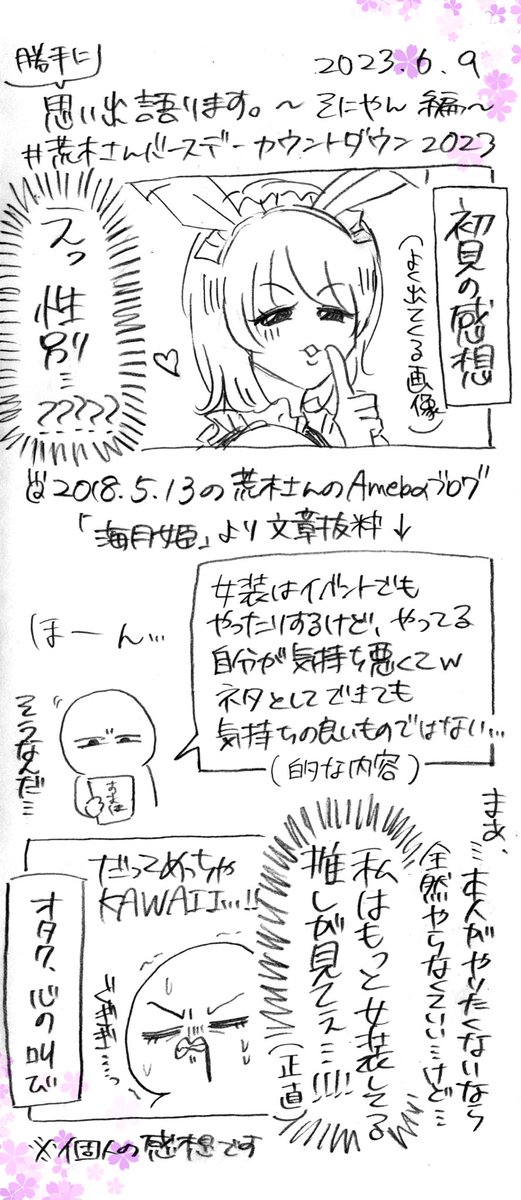 勝手に
2023.6.9
思い出語ります。〜そにやん編〜
#荒木さんバースデーカウントダウン2023
初見の感想
(よく出てくる画像)
えっ性別…?????
2018.5.13の荒木さんのAmebaブログ
「海月姫」より文章抜粋↓
女装はイベントでも
やったりするけど、やってる
自分が気持ち悪くてw
ネタとしてできても
気持ちの良いものではない…
(的な内容)
ほーん…
そうなんだ…
すまほ
まあ、
…本人がやりたくないなら
全然やらなくていい…けど…
私はもっと女装してる
推しが見てぇ…!!!!
(正直)
だってめっちゃ
KAWAII…!!
ぐぎぎ…っ
オタク、心の叫び
※個人の感想です